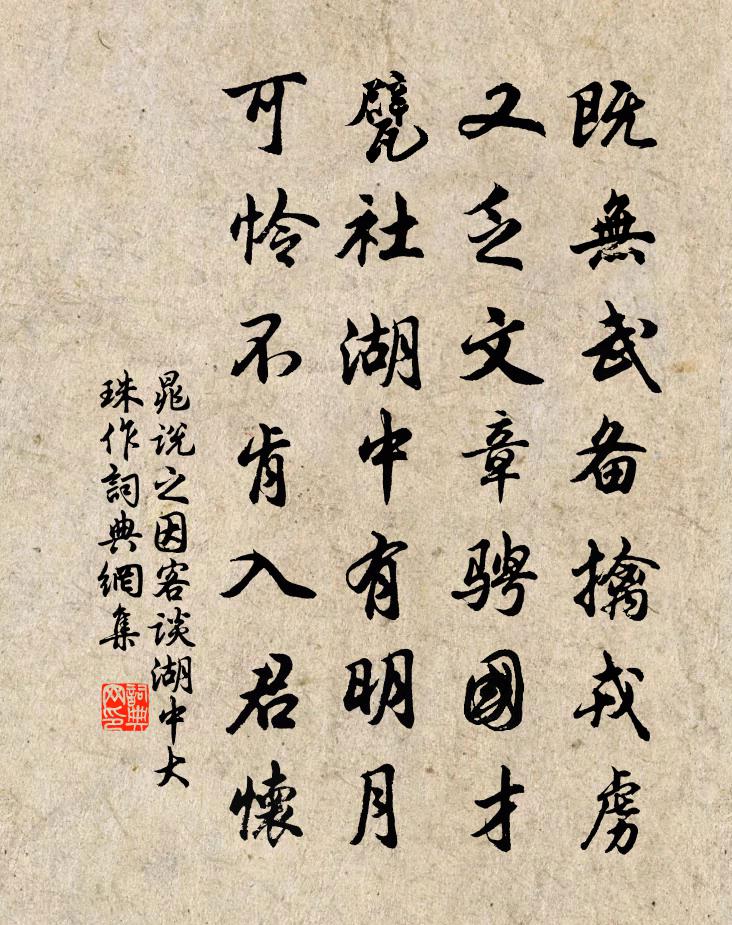 既無武备擒戎虜
又乏文章騁國才
甓社湖中有明月
可怜不肯入君懷
晁說之因客谈湖中大
珠作詞典網集
詞典
网印